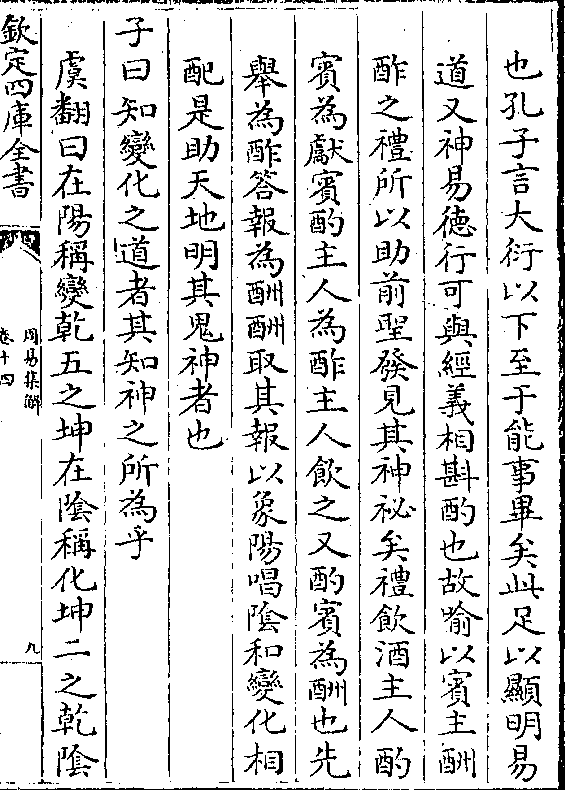 也孔子言大衍以下至于能事畢矣此足以顯明易
道又神易徳行可與經義相斟酌也故喻以賓主酬
酢之禮所以助前聖發見其神祕矣禮飲酒主人酌
賓為獻賓酌主人為酢主人飲之又酌賓為酬也先
舉為酢答報為酬酬取其報以象陽唱隂和變化相
配是助天地明其鬼神者也
子曰知變化之道者其知神之所為乎
虞翻曰在陽稱變乾五之坤在隂稱化坤二之乾隂
欽定四庫全書
周易集解
卷十四
九